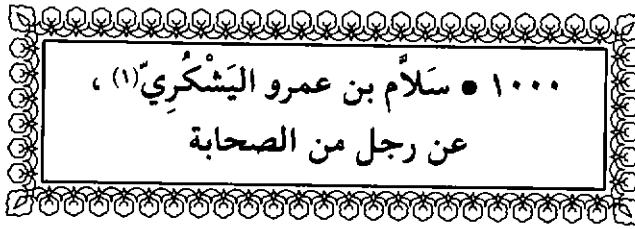 ١٠٠٠ • سَلاَّم بن عمرو اليَشْكُرِيّ(١) ،
عن رجل من الصحابة